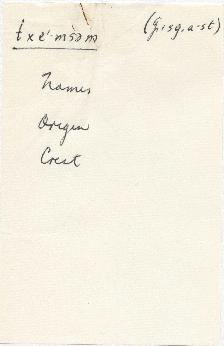 txe'-msəm (g,isg,a-st)
Names
Origin
Crest